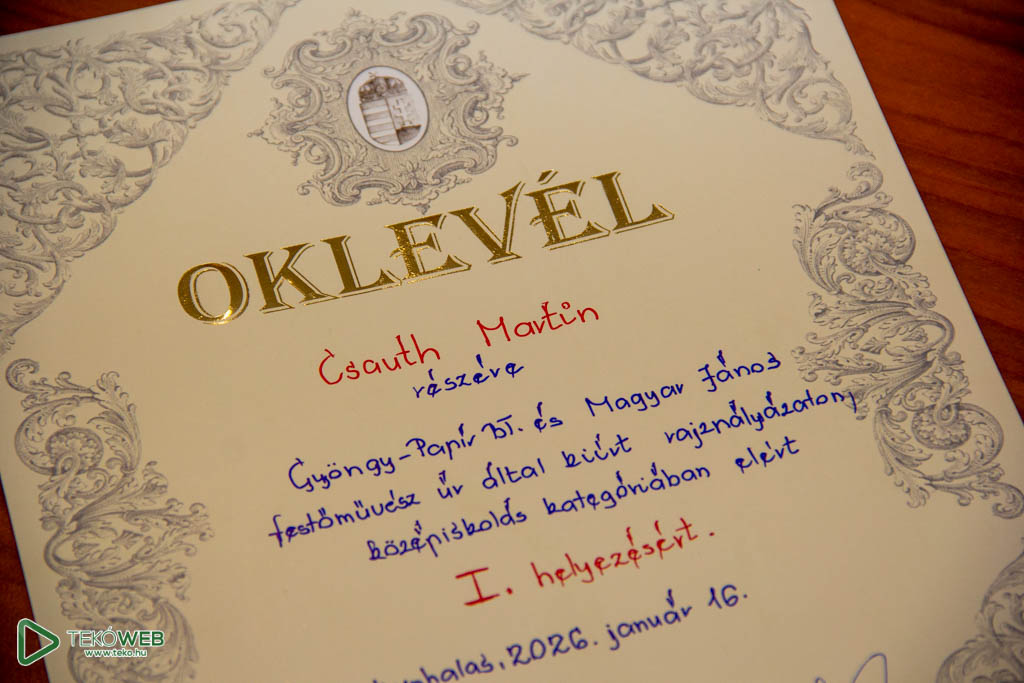 OKLEVÉL
Csauth Martin
részére
Gyöngy-Papír BT. és Magyar János
festőművész úr által kiírt rajzpályázaton,
középiskolás kategóriában elért
I. helyezésért.
2026. január 16.
TEKÓWEB
www.teko.hu